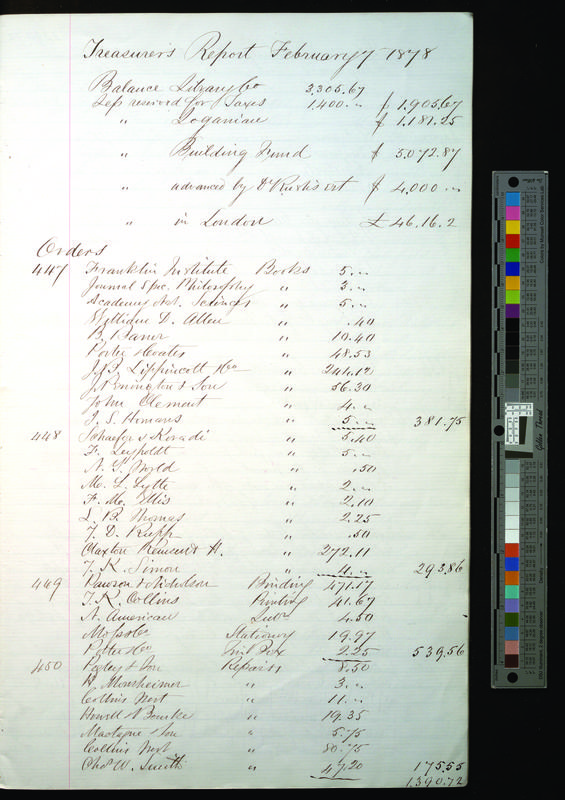 Treasurer's Report February 7 1878
Balance Library Co 3,305.67
Less reserved for Taxes 1.400. " $ 1,905.67
" Loganian $ 1.181.25
" Building Fund $ 5.072.87
" advanced by Dr Rush's Est $ 4,000 "
" in London £ 46.16.2
Orders
447 Franklin Institute Books 5. "
Journal Spec. Philosophy " 3. "
Academy Nat. Sciences " 5. "
William D. Allen " .40
B. " 10.40
Porter & Coates " 48.53
J.B. Lippincott & Co " 241.12
J. Penington & Son " 56.30
John Clement " 4. "
I. S. Homans " 5. " 381.75
448 Schaefer & Koradi " 5.40
F. Leypoldt " 5. "
N. T. " .50
" 2. "
F. Mc. Ellis " 2.10
L. B. Thomas " 2.25
I. D. Rupp " .50
Claxton Remsen & H. " 272.11
T. K. Simon " 4. " 293.86
449 Pawson & Nicholson Binding 471.17
T. K. Collins Printing 41.67
N. American Subn 4.50
Moss & Co Stationery 19.97
Potter & Co 2.25 539.56
450 & Son Repairs 8.50
Monsheimer " 3. "
Collins West " 11. "
Howell & Bourke " 19.35
& Son " 5.75
Collins West " 80.75
Chas W. Smith " 47.20 175.55
1.390.72